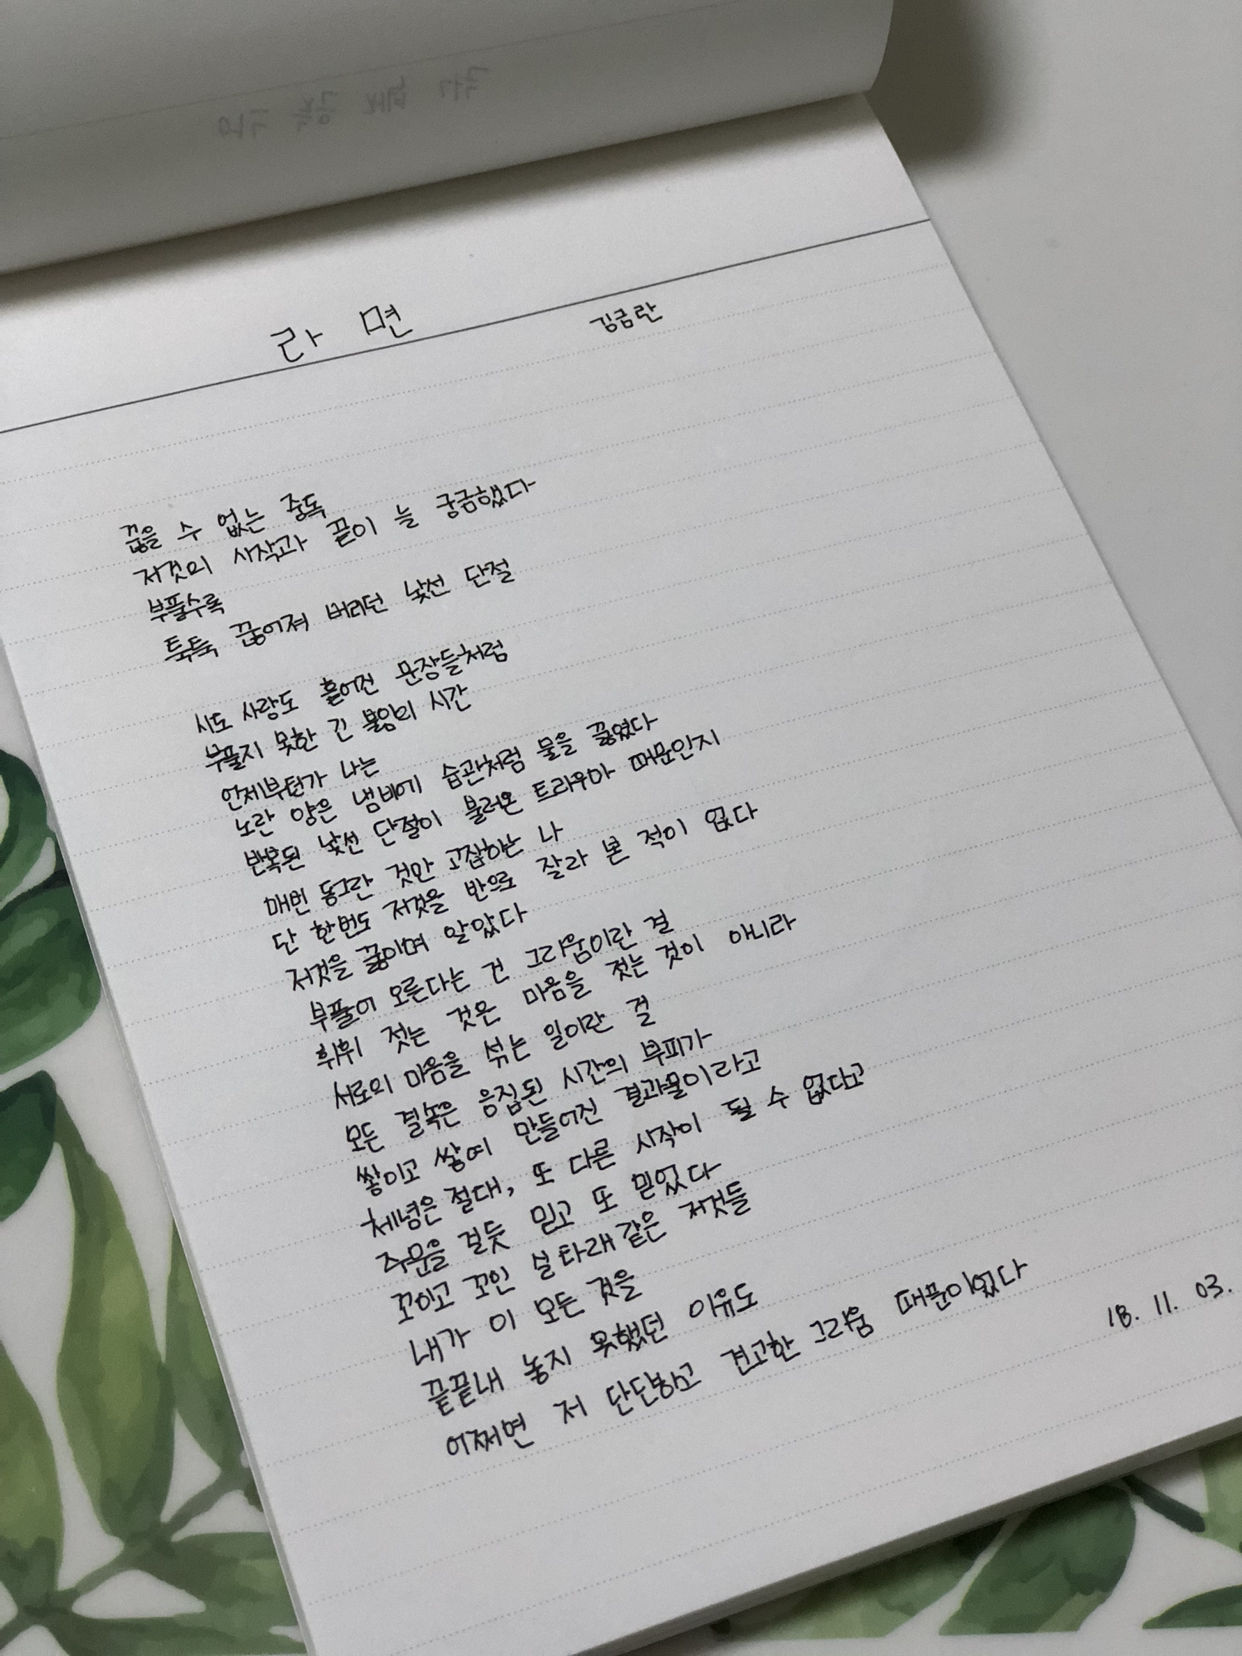 라면
김금란
끊을 수 없는 중독
저것의 시작과 끝이 늘 궁금했다
부풀수록
툭툭 끊어져 버리던 낯선 단절
시도 사랑도 흩어진 문장들처럼
부풀지 못한 긴 불임의 시간
언제부턴가 나는
노란 양은 냄비에 습관처럼 물을 끓였다
반복된 낯선 단절이 불러온 트라우마 때문인지
매번 동그란 것만 고집하는 나
단 한번도 저것을 반으로 잘라 본 적이 없다
저것을 끓이며 알았다
부풀어 오른다는 건 그리움이란 걸
휘휘 젓는 것은 마음을 젓는 것이 아니라
서로의 마음을 섞는 일이란 걸
모든 결속은 응집된 시간의 부피가
쌓이고 쌓여 만들어진 결과물이라고
체념은 절대, 또 다른 시작이 될 수 없다고
주문을 걸듯 믿고 또 믿었다
꼬이고 꼬인 실타래 같은 저것들
내가 이 모든 것을
끝끝내 놓지 못했던 이유도
어쩌면 저 단단하고 견고한 그리움 때문이었다
18. 11. 03.